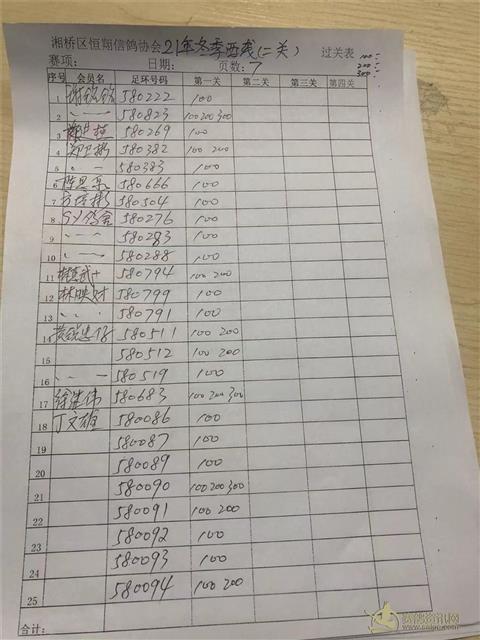 湘桥区恒翔信鸽协会 21年冬季西线(二关) 过关表 100:
赛项: 日期: 页数:7 200:
300:
序号 会员名 足环号码 第一关 第二关 第三关 第四关
1 580222 100
2 〃 一 580823 100 200 300
3 580269 100
4 郑卫彬 580382 100 200
5 〃 一 580383 100
6 580666 100
7 580504 100
8 580276 100
9 〃 一 580283 100
10 〃 一 580288 100
11 580794 100 200
12 林映财 580799 100
13 〃 〃 580791 100
14 580511 100 200
15 580512 100 200
16 〃 一 580519 100
17 徐浩伟 580683 100 200 300
18 丁文雄 580086 100
19 580087 100
20 580089 100
21 580090 100 200 300
22 580091 100 200
23 580092 100
24 580093 100
25 580094 100 200
合计: